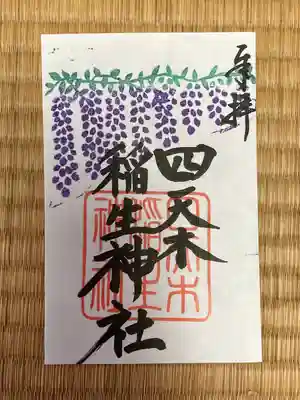 奉拝
四天木
稲生神社
四天木稲生神社